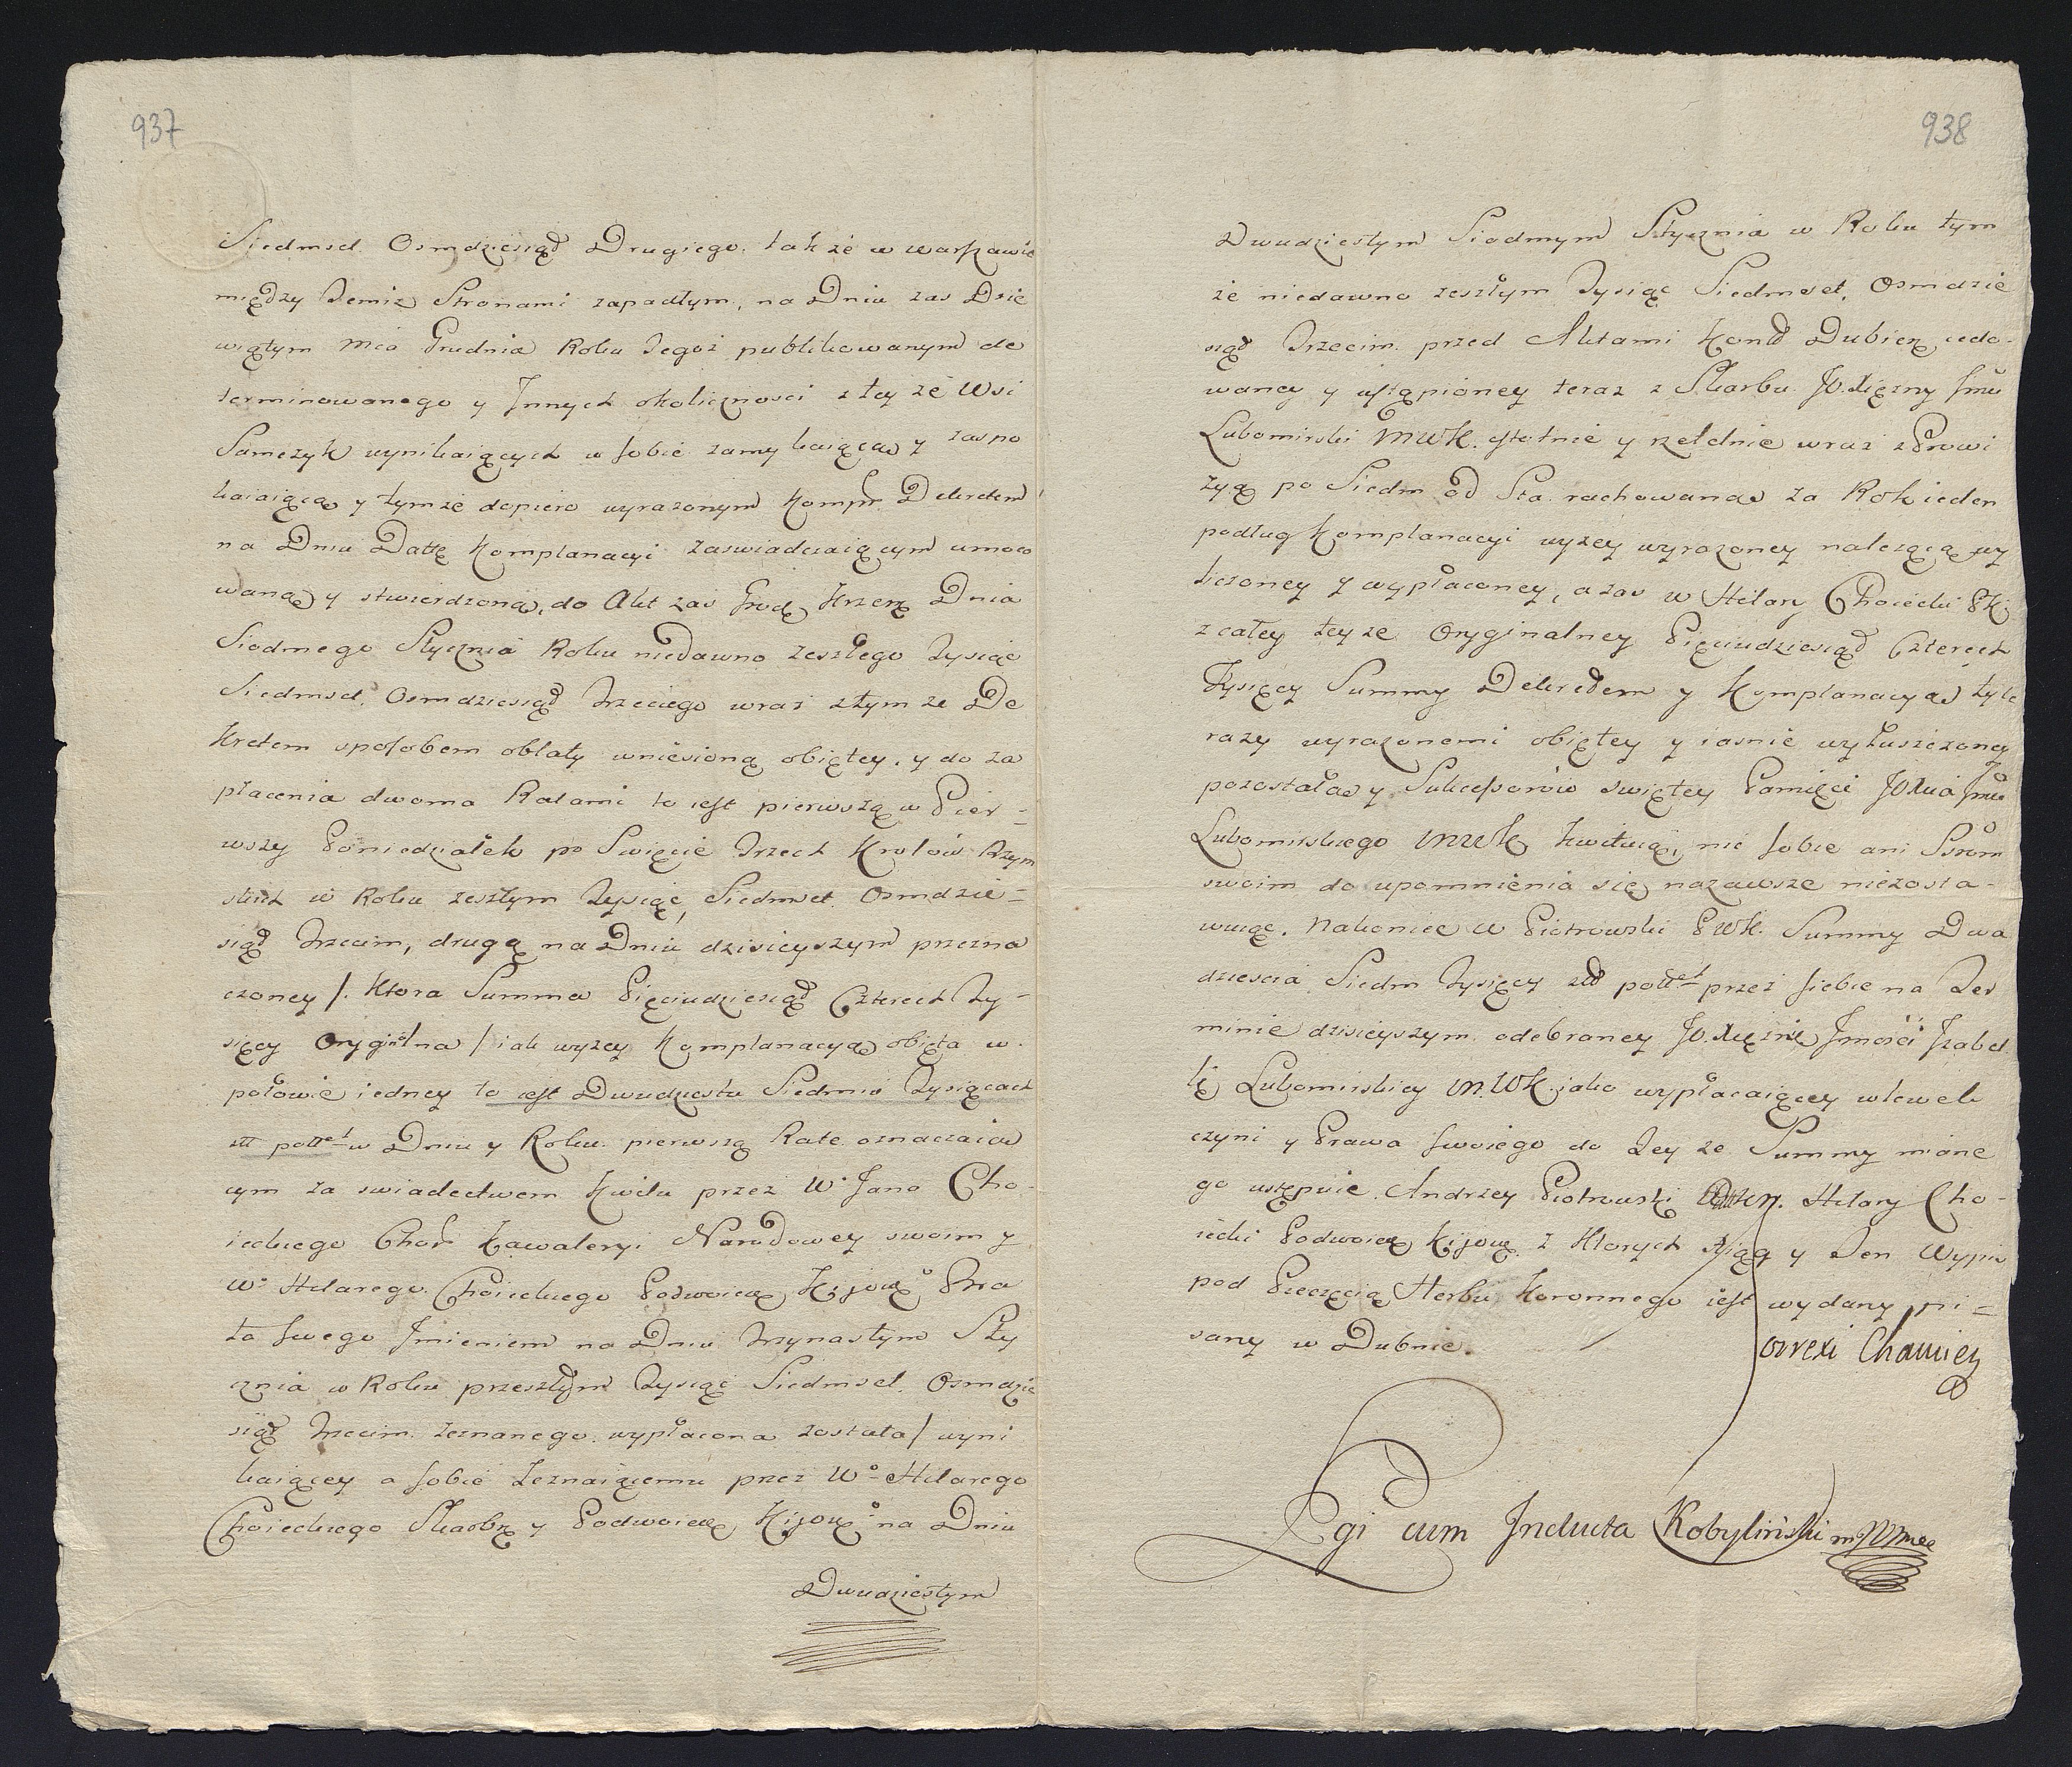 937
Siedmset Osmdziesiąt Drugiego. także w Warszawie
między Temiż Stronami zapadłym, na Dniu zas Dzie
wiątym Mca Grudnia Roku Tegoż publikowanym de
terminowanego y Innych okolicznosci z tey że Wsi
Samczyk wynikaiących w sobie zamykaiącą y zaspo
kaiaiącą y tymże dopiero wyrazonym Kompr Dekretem
na Dniu Datty Komplanacyi zaswiadczaiącym umoco
waną y stwierdzoną, do Akt zas Grod Krzem Dnia
Siodmego Stycznia Roku niedawno zeszłego Tysiąc
Siedmset Osmdziesiąt Trzeciego wraz z tymże De
kretem sposobem oblaty wniesioną obiętey, y do za
płacenia dwoma Ratami to iest pierwszą w Pier-
wszy Poniedziałek po Swięcie Trzech Krolów Rzym
skich w Roku zeszłym Tysiąc, Siedmset Osmdzie-
siąt Trzecim, drugą na Dniu dzisieyszym przezna
czoney /. Ktora Summa Pięciudziesiąt Czterech Ty-
sięcy Orygilna / iak wyzey Komplanacyą obięta w
połowie iedney to iest Dwudziestu Siedmiu Tysiącach
złł poll w Dniu y Roku pierwszą Ratę oznaczaią
cym za swiadectwem Kwitu przez W Jana Cho-
ieckiego Chor Kawaleryi Narodowey swoim y
Wo Hilarego Choieckiego Podwoiew Kijow Bra
ta swego Imieniem na Dniu Trzynastym Sty
cznia w Roku przeszłym Tysiąc Siedmset Osmdzie
siąt Trzecim zeznanego wypłacona została / wyni
kaiącey a sobie Zeznaiącemu przez Wo Hilarego
Choieckiego Skarbn y Podwoiew Kijow na Dniu
Dwudziestym
938
Dwudziestym Siodmym Stycznia w Roku tym
że niedawno zeszłym Tysiąc Siedmset, Osmdzie
siąt Trzecim przed Aktami Kond Dubien cedo-
waney y ustąpioney teraz z Skarbu JO. Xiężny Jmci
Lubomirski MWK. istotnie y rzetelnie wraz z Prowi
zyą po Siedm od Sta rachowaną za Rok ieden
podług Komplanacyi wyzey wyrazoney nalezącą wy
liczoney y wypłaconey, a zas w Hilary Choiecki PKij
z całey teyże Oryginalney Pięciudziesiąt Czterech
Tysięcy Summy Dekretem y Komplanacyą tyle
razy wyrazonemi obiętey y iasnie wyłuszczoney
pozostałą y Sukcessorów swiętey Pamięci JOXcia Jmci
Lubomirskiego MWK Kwituią, nic sobie ani Ssrom
swoim do upomnienia się nazawsze niezosta-
wuiąc. Nakoniec W Piotrowski PWK. Summy Dwa
dziescia Siedm Tysięcy złł poll przez siebie na Ter
minie dzisieyszym odebraney JO. Xiężnie Jmosci Izabel
li Lubomirskiey M.WK. iako wypłacaiącey wlewek
czyni y Prawa swoiego do Teyże Summy miane
go ustępuie. Andrzey Piotrowski Hilary Cho-
iecki Podwoiew Kijow. Z Ktorych Xiąg y Ten Wypis
pod Pieczęcią Herbu Koronnego iest wydany pi-
sany w Dubnie.
orrexi Chamiey
Lgi cum Inducta Kobyliński